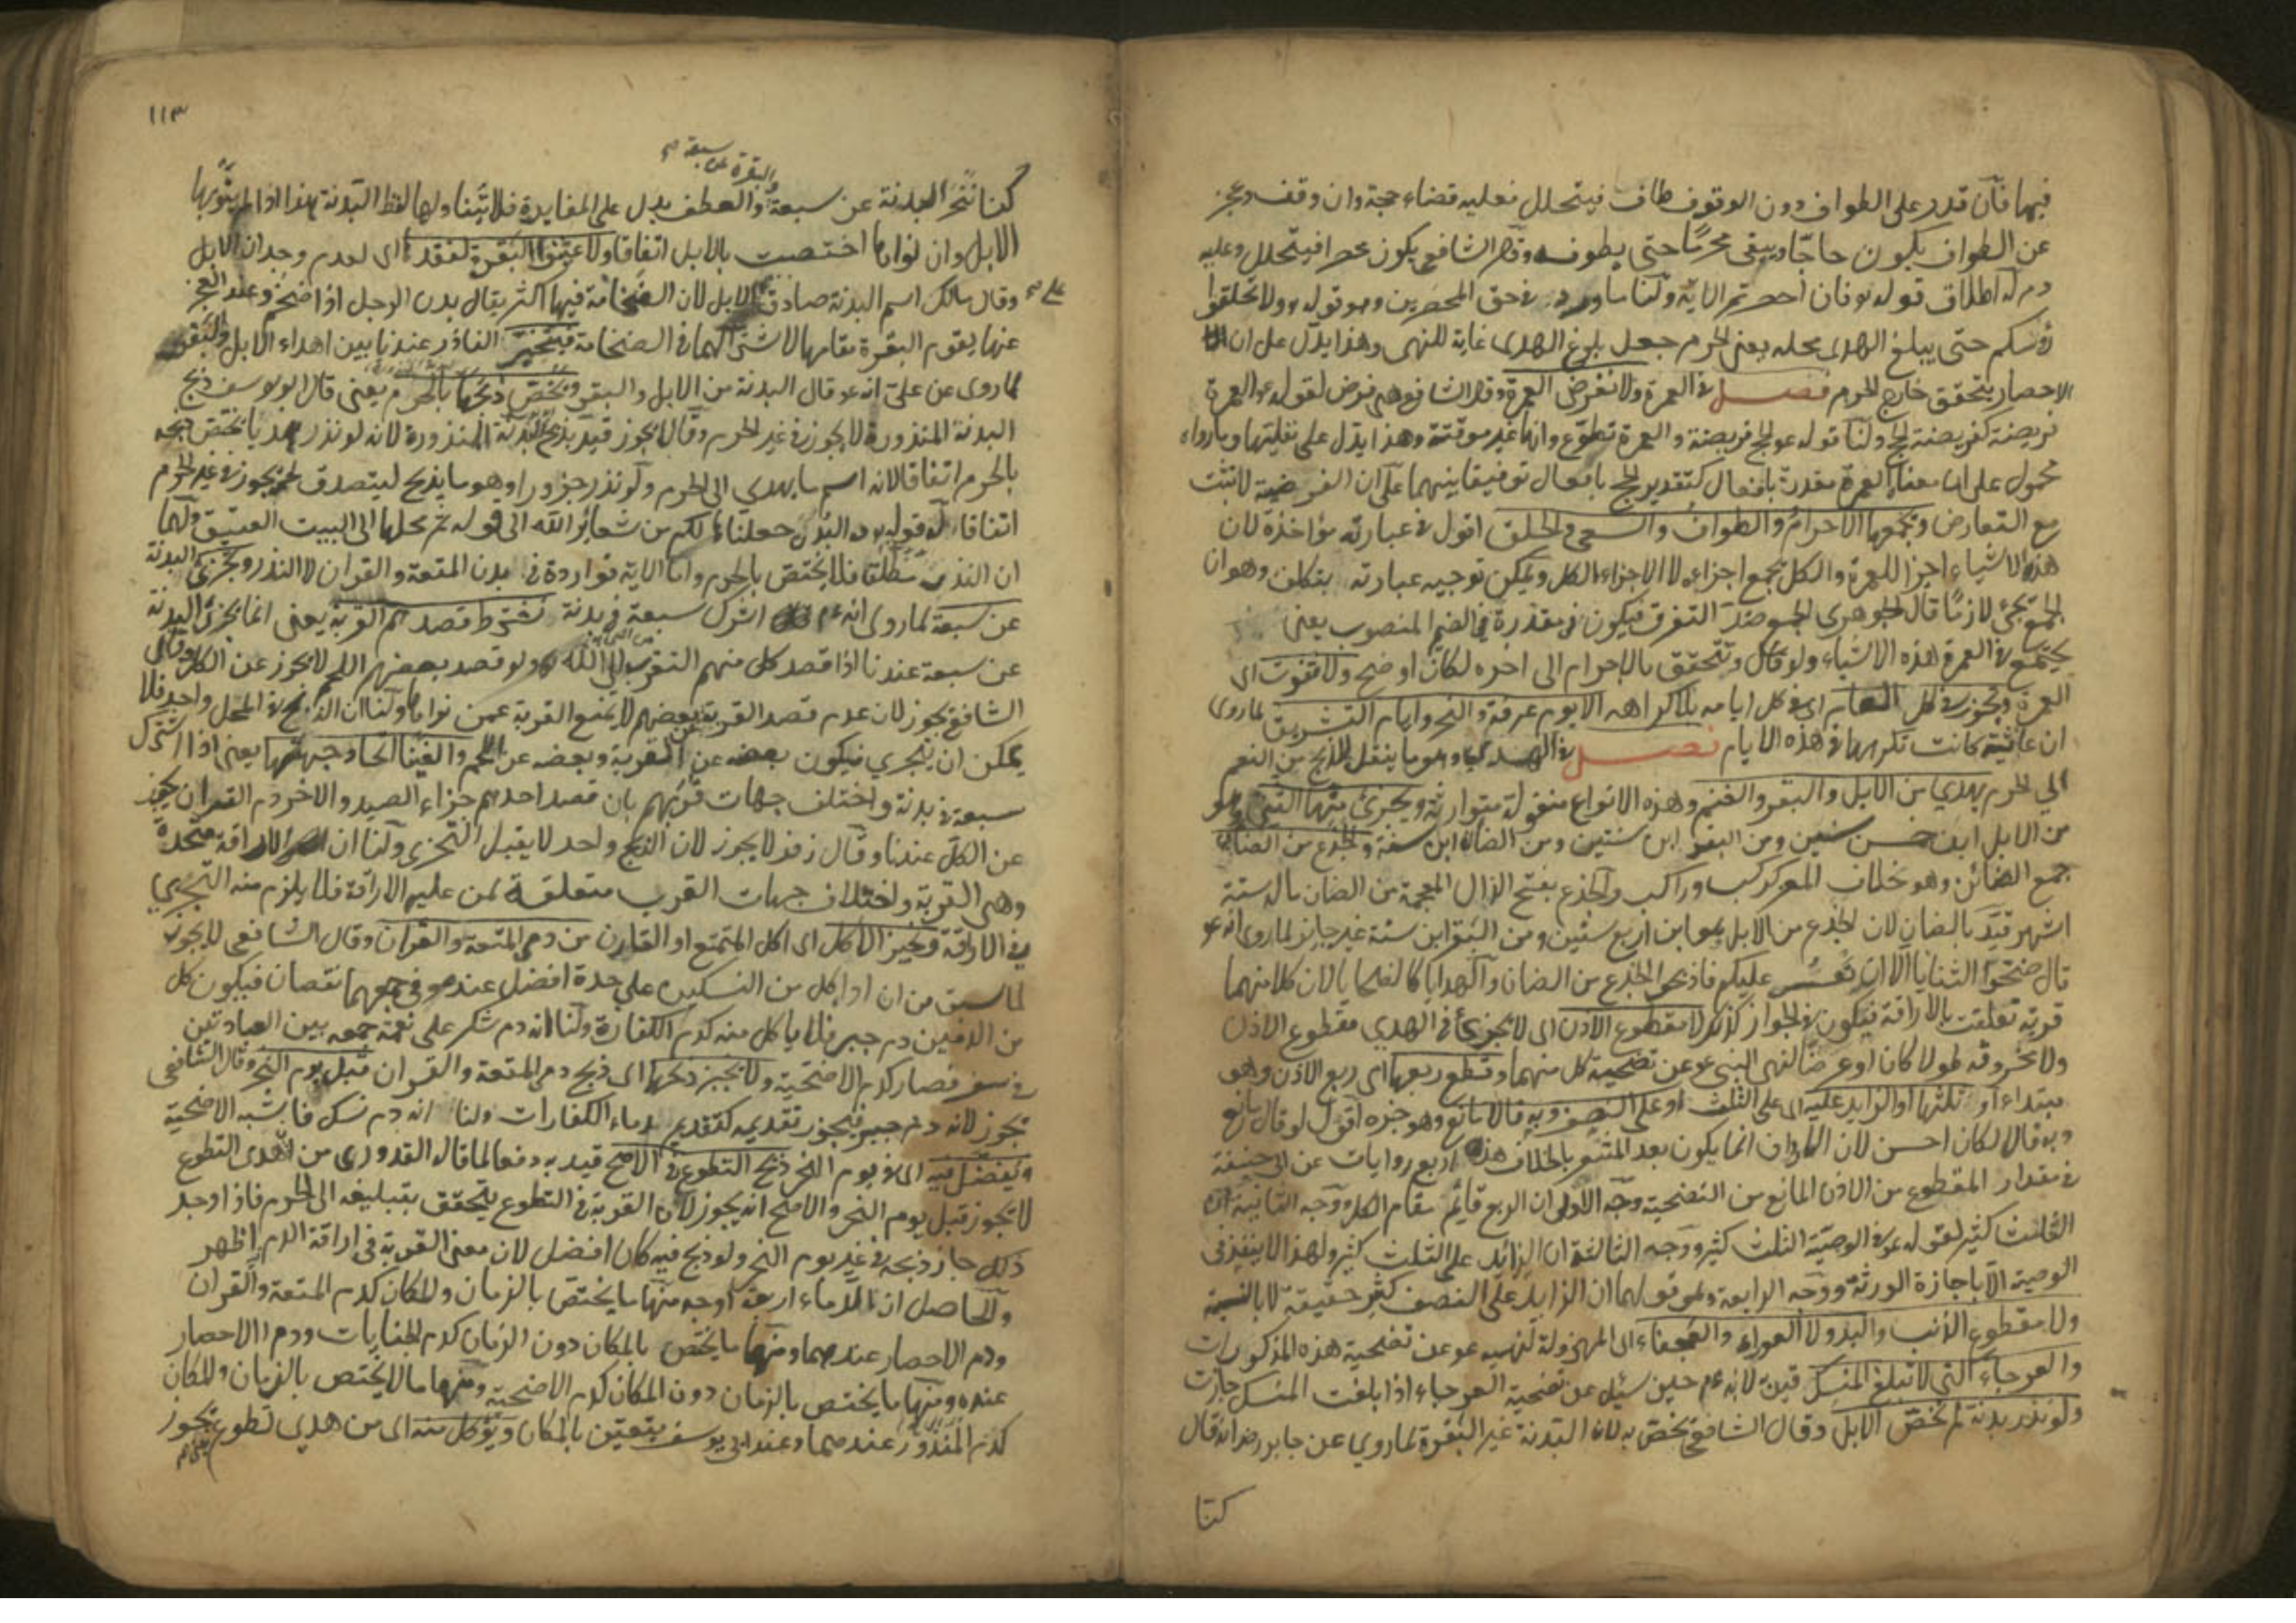 فيها فان قدر على الطواف دون الوقوف طاف فيتحلل فعليه قضاء حجة وان وقف وعجز
عن الطواف يكون حاجا ويبقى محرما حتى يطوف وقال الشافعي يكون محصرا فيتحلل وعليه
دم له اطلاق قوله فان احصرتم الاية ولنا ما ورد في حق المحصرين وهو قوله ولا تحلقوا
رؤسكم حتى يبلغ الهدى محله يعنى الحرم جعل بلوغ الهدى غاية للنهى وهذا يدل على ان
الاحصار يتحقق خارج الحرم فصل في العمرة ولا نفرض العمرة وقال الشافعي هى فرض لقوله عم العمرة
فريضة كفريضة الحج ولنا قوله عم الحج فريضة والعمرة تطوع وانها غير موقتة وهذا يدل على نفليتها وما رواه
محمول على ان معناه العمرة مقدرة بافعال كتقدير الحج بافعال توفيقا بينهما على ان الفرضية لا تثبت
مع التعارض ويجمعها الاحرام والطواف والسعى والحلق اقول في عبارته مؤاخذة لان
هذه الاشياء اجزا للعمرة والكل يجمع اجزاءه لا الاجزاء الكل ويمكن توجيه عبارته بتكلف وهو ان
الجمع يجئ لازما قال الجوهرى الجمع ضد التفرق فيكون في مقدرة في الضمير المنصوب يعنى
يجتمع في العمرة هذه الاشياء ولو قال وتتحقق بالاحرام الى اخره لكان اوضح ولا تفوت اى
العمرة وتجوز في كل العام اى في كل ايامه بلا كراهه الا يوم عرفة والنحر وايام التشريق لما روى
ان عائشة كانت تكرهها في هذه الايام فصل في الهدى وهو ما ينقل للذبح من النعم
الى الحرم يهدى من الابل والبقر والغنم وهذه الانواع منقولة متوارثة ويجزئ منها الثنى وهو
من الابل ابن خمس سنين ومن البقر ابن سنتين ومن الضان ابن سنة والجذع من الضان
جمع الضائن وهو خلاف المعز كركب وراكب والجذع بفتح الذال المعجمة من الضان ماله ستة
اشهر قيد بالضان لان الجذع من الابل وهو ابن اربع سنين ومن البقر ابن سنة غير جايز لما روى انه عم
قال ضحوا الثنايا الا ان تعسر عليكم فاذبحوا الجذع من الضان والهدايا كالضحايا لان كلا منهما
قربة تعلقت بالاراقة فيكون في الجواز كذلك لا مقطوع الاذن اى لا يجزئ في الهدى مقطوع الاذن
ولا مخروقه طولا كان او عرضا لنهى النبى عم عن تضحية كل منهما وقطع ربعها اى ربع الاذن وهو
مبتداء او ثلثها او الزايد عليه اى على الثلث او على النصف وبه قالا مانع وهو خبره اقول لو قال مانع
وبه قالا لكان احسن لان الخلاف انما يكون بعد المتنوع بالخلاف هذه اربع روايات عن ابى حنيفة
في مقدار المقطوع من الاذن المانع من التضحية وجه الاولى ان الربع قائم مقام الكل ووجه الثانية ان
الثلث كثير لقوله عم في الوصية الثلث كثير ووجه الثالثة ان الزائد على الثلث كثير ولهذا لا ينفذ في
الوصية الا باجازة الورثة ووجه الرابعة وهو قولهما ان الزايد على النصف كثير حقيقة لا بالنسبة
ولا مقطوع الذنب واليد ولا العوراء والعجفاء اى المهزولة لنهيه عم عن تضحية هذه المذكورات
والعرجاء التى لا تبلغ المنسك قيد به لانه عم حين سئل عن تضحية العرجاء اذا بلغت المنسك جازت
ولو نذر بدنة لم نخص الابل وقال الشافعي نخص به لان البدنة غير البقرة لما روى عن جابر رضه انه قال
كنا
١١٣
البقرة عن سبعة صح
كنا ننحر البدنة عن سبعة والعطف يدل على المغايرة فلا يتناولها لفظ البدنة هذا اذا لم ينو بها
الابل وان نواها اختصت بالابل اتفاقا ولا عينوا البقرة لفقد اى لعدم وجدان الابل
وقال مالك اسم البدنة صادق على الابل لان الضخامة فيها اكثر يقال بدن الرجل اذا ضخم وعند العجز
عنها يقوم البقرة مقامها لاشتراكهما في الضخامة فيتخير الناذر عندنا بين اهداء الابل والبقر
لما روى عن على انه عم قال البدنة من الابل والبقر ونخص ذبحها بالحرم يعنى قال ابو يوسف ذبح
البدنة المنذورة لا يجوز في غير الحرم وقالا يجوز قيد بذبح البدنة المنذورة لانه لو نذر هديا يختص ذبحه
بالحرم اتفاقا لانه اسم ما يهدى الى الحرم ولو نذر جزورا وهو ما يذبح ليتصدق لحمه يجوز في غير الحرم
اتفاقا له قوله والبدن جعلناها لكم من شعائر الله الى قوله ثم محلها الى البيت العتيق ولهما
ان النذر مطلق فلا يختص بالحرم واما الاية فواردة في بدن المتعة والقران لا النذر ويجزئ البدنة
عن سبعة لما روى انه عم اشرك سبعة في بدنة نشترط قصدهم القربة يعنى انما يجزئ البدنة
عن سبعة عندنا اذا قصد كل منهم التقرب الى الله ولو قصد بعضهم اللحم لا يجوز عن الكل وقال
الشافعي يجوز لان عدم قصد القربة من بعضهم لا يمنع القربة عمن نواها ولنا ان الذبح في المحل واحد فلا
يمكن ان يتجزى فيكون بعضه عن القربة وبعضه عن اللحم والغينا اتحاد جهتها يعنى اذا اشترك
سبعة في بدنة واختلف جهات قربهم بان قصد احدهم جزاء الصيد والاخر دم القران يجوز
عن الكل عندنا وقال زفر لا يجوز لان الذبح واحد لا يقبل التجزى ولنا ان الاراقة متحدة
وهى القربة واختلاف جهات القرب متعلقة لمن عليهم الاراقة فلا يلزم منه التجزى
في الاراقة ونجيز الاكل اى اكل المتمتع او القارن من دمى المتعة والقران وقال الشافعي لا يجوز
لما سبق من ان اداء كل من النسكين على حدة افضل عنده وفي جمعهما نقصان فيكون كل
من الدمين دم جبر فلا ياكل منه كدم الكفارة ولنا انه دم شكر على نعمة جمعه بين العبادتين
في سفر فصار كدم الاضحية ولا نجيز ذبحها اى ذبح دمى المتعة والقران قبل يوم النحر وقال الشافعي
يجوز لانه دم جبر فيجوز تقديمه كتقديم دماء الكفارات ولنا انه دم نسك فاشبه الاضحية
ويفضل فيه اى في يوم النحر ذبح التطوع في الاصح قيد به دفعا لما قال القدورى من ان هدى التطوع
لا يجوز قبل يوم النحر والاصح انه يجوز لان القربة في التطوع يتحقق بتبليغه الى الحرم فاذا وجد
ذلك جاز ذبحه في غير يوم النحر ولو ذبح فيه كان افضل لان معنى القربة في اراقة الدم اظهر
والحاصل ان الدماء اربعة اوجه منها ما يختص بالزمان والمكان كدم المتعة والقران
ودم الاحصار عندهما ومنها ما يختص بالمكان دون الزمان كدم الجنايات ودم الاحصار
عنده ومنها ما يختص بالزمان دون المكان كدم الاضحية ومنها ما لا يختص بالزمان والمكان
كدم المنذور عندهما وعند ابى يوسف يتعين بالمكان ويؤكل منه اى من هدى تطوع يجوز